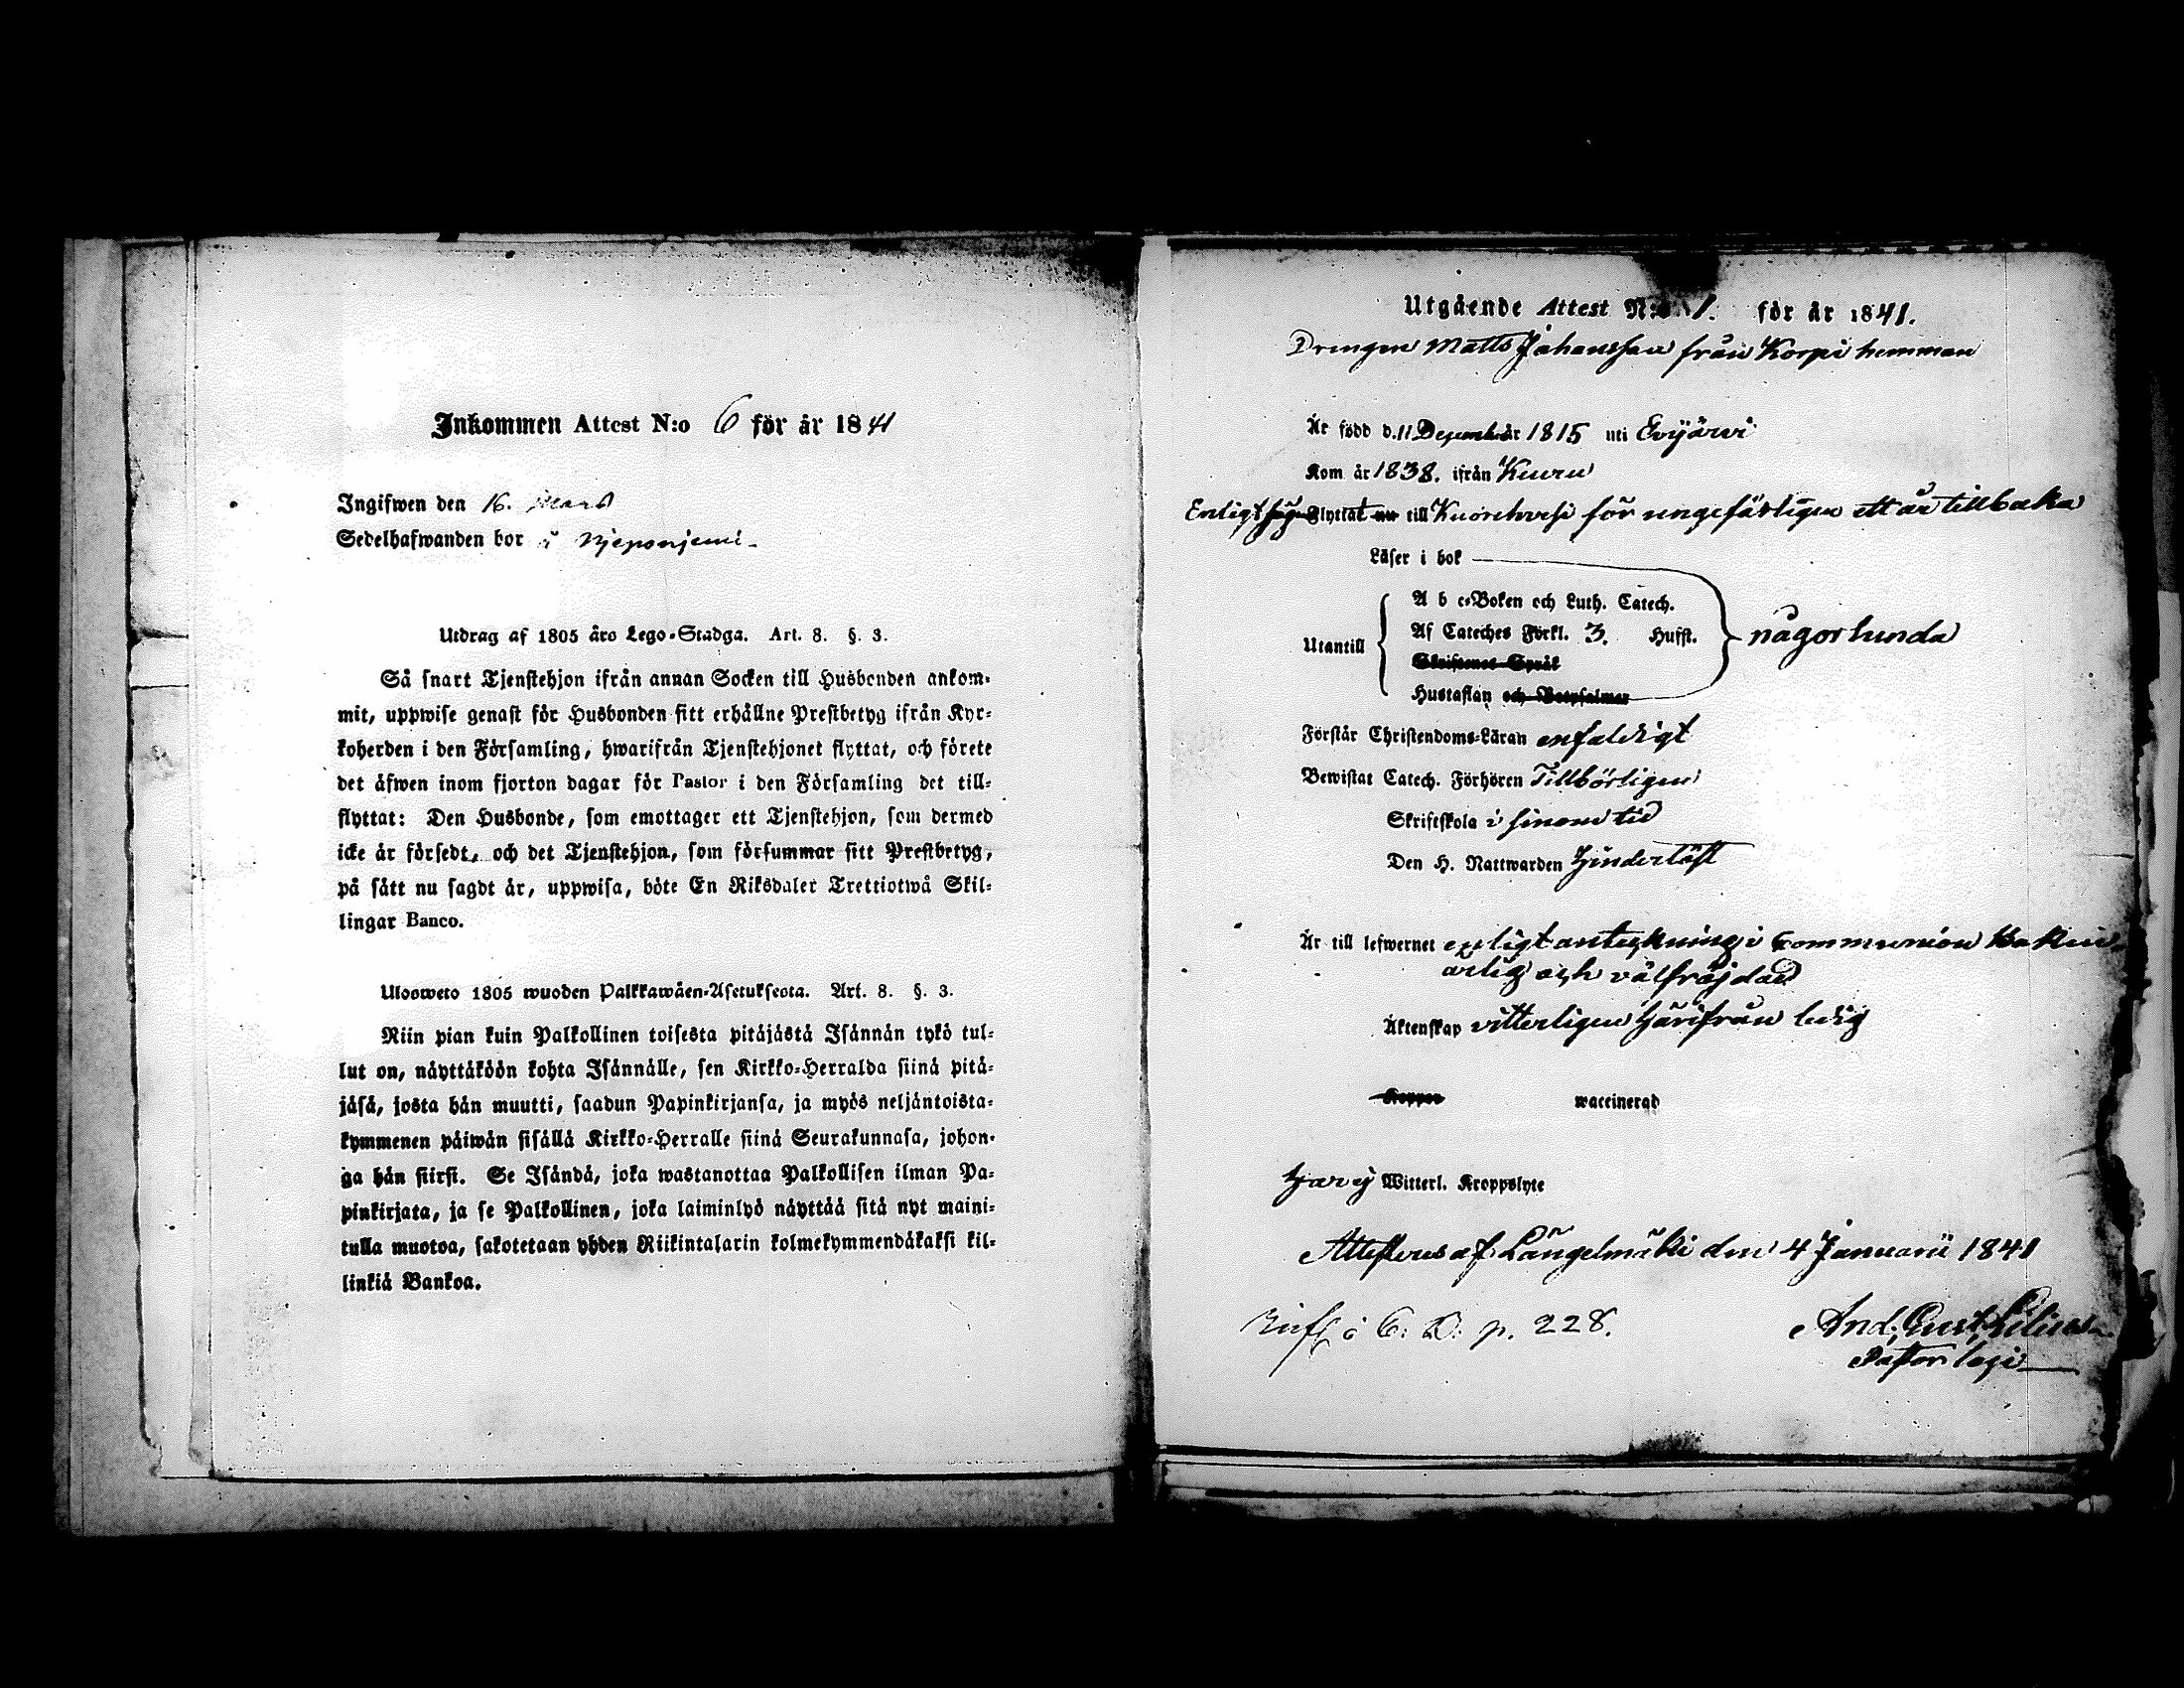 Inkommen Attest N:o 6 för år 1841
Ingifwen den 16. Mars
Sedelhafwanden bor i
Utdrag af 1805 års Lego-Stadga. Art. 8. §. 3.
Så snart Tjenstehjon ifrån annan Socken till Husbonden ankom-
mit, uppwise genast för Husbonden sitt erhållne Prestbetyg ifrån Kyr-
koherden i den Församling, hwarifrån Tjenstehjonet flyttat, och förete
det äfwen inom fjorton dagar för Pastor i den Församling det till-
flyttat: Den Husbonde, som emottager ett Tjenstehjon, som dermed
icke är försedt, och det Tjenstehjon, som försummar sitt Prestbetyg,
på sätt nu sagdt är, uppwisa, böte En Riksdaler Trettiotwå Skil-
lingar Banco.
Ulosweto 1805 wuoden Palkkawäen-Asetuksesta. Art. 8. §. 3.
Niin pian kuin Palkollinen toisesta pitäjästä Isännän tykö tul-
lut on, näyttäköön kohta Isännälle, sen Kirkko-Herralda siinä pitä-
jäsä, josta hän muutti, saadun Papinkirjansa, ja myös neljäntoista-
kymmenen päiwän sisällä Kirkko-Herralle siinä Seurakunnasa, johon-
ga hän siirsi. Se Isändä, joka wastanottaa Palkollisen ilman Pa-
pinkirjata, ja se Palkollinen, joka laiminlyö näyttää sitä nyt maini-
tulla muotoa, sakotetaan yhden Riikintalarin kolmekymmendäkaksi kil-
linkiä Bankoa.
Utgående Attest N:o 1. för år 1841.
Drengen Matts Johansson från Korpi hemman
Är född d. 11 December år 1815 uti Evijärvi
Kom år 1838. ifrån Kuru
Enligt sägen Flyttat nu till Kuorehvesi för ungefärligen ett år tillbaka
Läser i bok
A b c-Boken och Luth. Catech.
Af Cateches Förkl. 3. Hufst.
Utantill någorlunda
Skriftenes Språk
Hustaflan och Botpsalmer
Förstår Christendoms-Läran enfaldigt
Bewistat Catech. Förhören Tillbörligen
Skriftskola i sinom tid
Den H. Nattwarden Hinderlöst
Är till lefwernet enligt anteckning i Communion Boken
ärlig och välfräjdad
Äktenskap vitterligen härifrån ledig
Koppor waccinerad
Witterl. Kroppslyte
Attesteras af Längelmäki den 4 Januarii 1841
i C. B. p. 228.
And. Gust. Lilius
Pastor loci